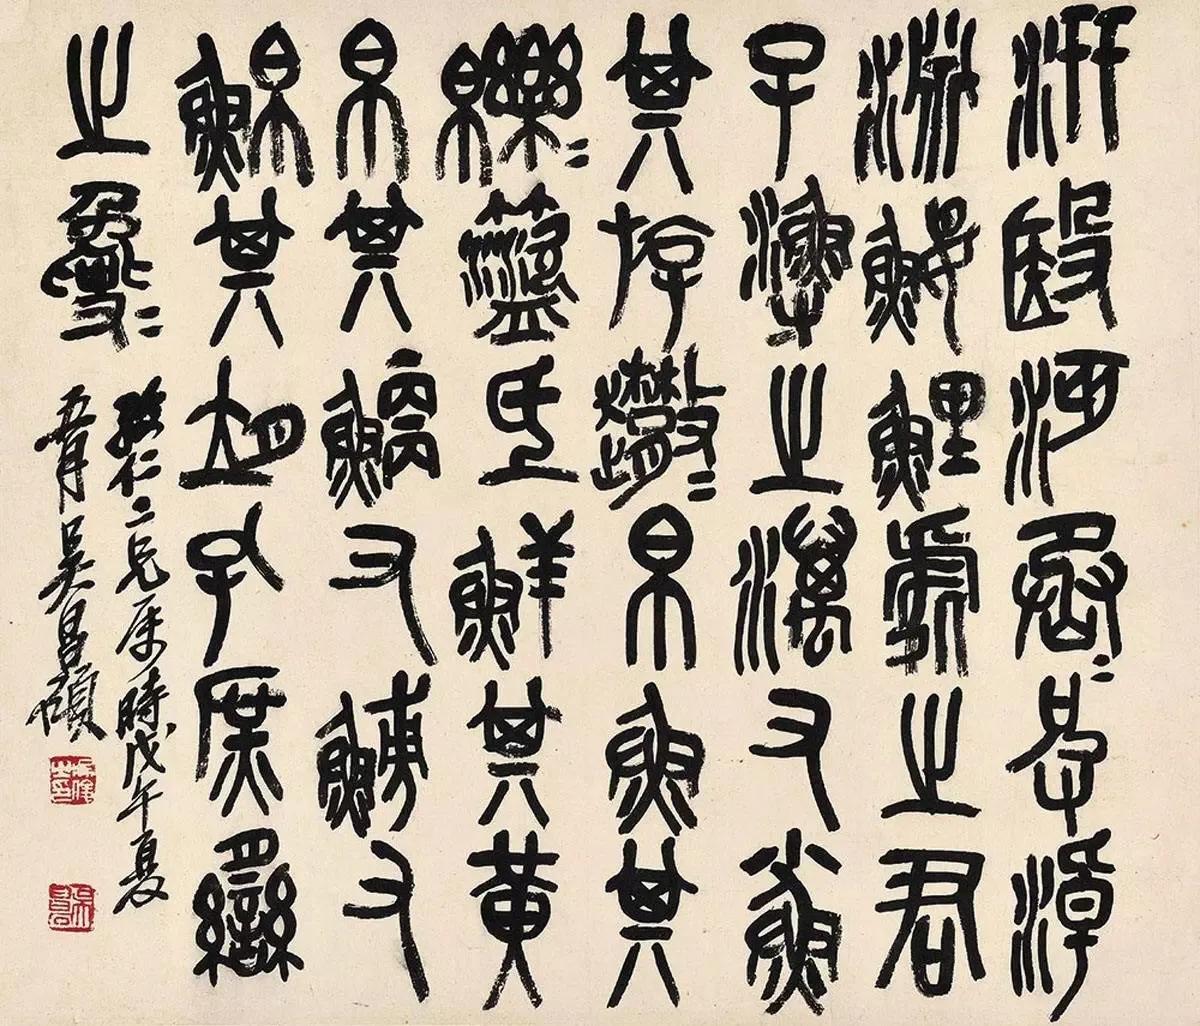 汧殹沔丞=皮淖
淵鰋鯉處之君
子漁之澫又小魚
其斿=帛魚其
=氐鮮其黃
帛其鯿又鯆又
鮊其孔庶臠
之=
仁二兄屬時戊午夏
五月吳昌碩